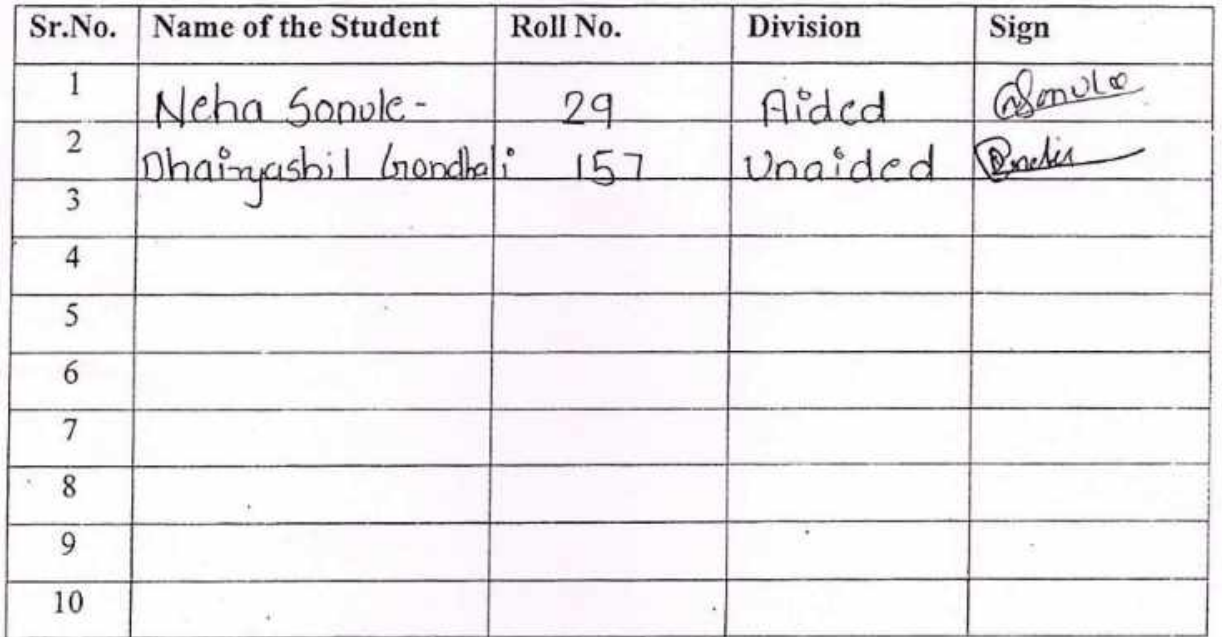 Sr.No. Name of the Student Roll No. Division Sign
1 Neha Sonule - 29 Aided NSonule
2 Dhairyashil Gondhali 157 Unaided
3
4
5
6
7
8
9
10